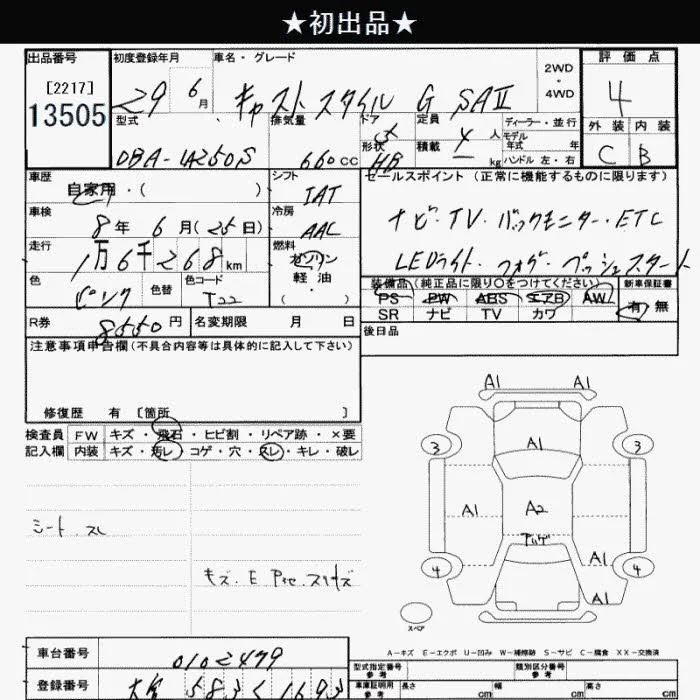 ★初出品★
出品番号 初度登録年月 車名・グレード 2WD・4WD 評価点
[2217]
13505
29 6月 キャスト スタイル G SAⅡ 4
型式 排気量 ドア 形状 定員 積載 ディーラー・並行 モデル年式 年 ハンドル 左・右 外装 内装
DBA-LA250S 660cc 5 HB 4人 kg C B
車歴 自家用・( ) シフト IAT セールスポイント(正常に機能するものに限ります)
車検 8年 6月(25日) 冷房 AAC ナビ・TV・バックモニター・ETC
走行 1万6千268km 燃料 ガソリン 軽油 ( ) LEDライト・フォグ・プッシュスタート
色 ピンク 色替 色コード T22
装備品(純正品に限り〇をつけてください) 新車保証書
PS PW ABS エアB AW 有・無
SR ナビ TV カワ
R券 8550円 名変期限 月 日 後日品
注意事項申告欄(不具合内容等は具体的に記入して下さい)
修復歴 有 〔箇所 〕
検査員 FW キズ・飛石・ヒビ割・リペア跡・×要
記入欄 内装 キズ・汚レ・コゲ・穴・スレ・キレ・破レ
シート スレ
A1 A1
3 A1 3
A1 A2 A1
4 A1 4
スペア
A-キズ E-エクボ U-凹み W-補修跡 S-サビ C-腐食 XX-交換済
車台番号 0102479
登録番号 583 1693
型式指定番号 参考 類別区分番号 参考
車庫証明用 参考 長さ cm 幅 cm 高さ cm